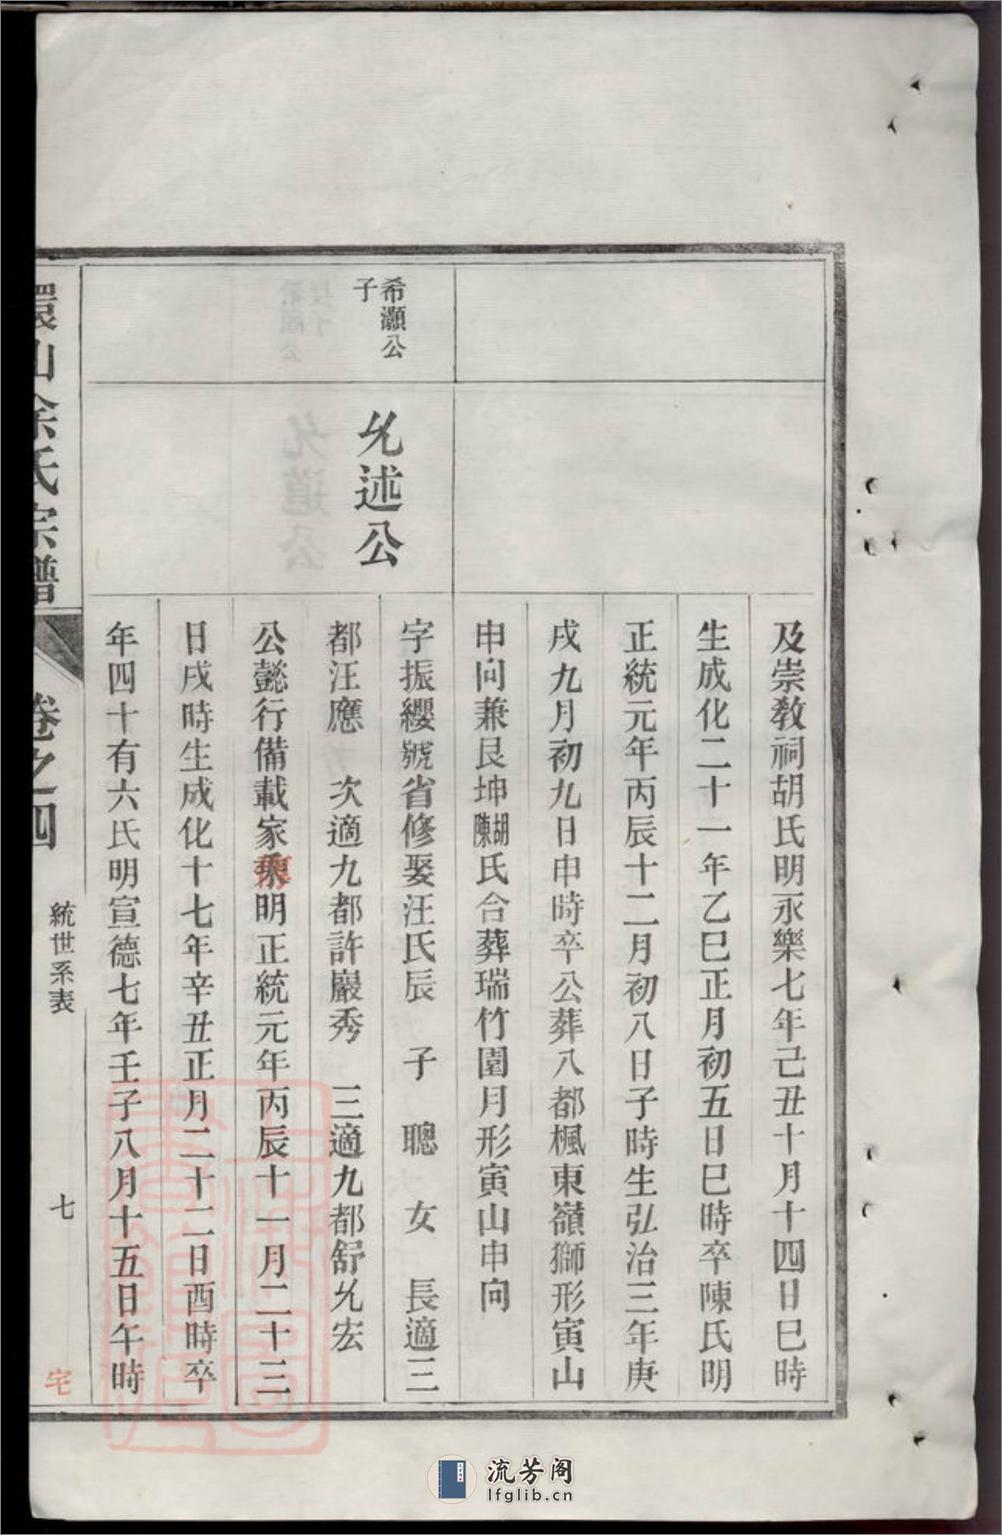 及崇教祠胡氏明永樂七年己丑十月十四日巳時
生成化二十一年乙巳正月初五日巳時卒陳氏明
正統元年丙辰十二月初八日子時生弘治三年庚
戌九月初九日申時卒公葬八都楓東嶺獅形寅山
申向兼艮坤胡陳氏合葬瑞竹園月形寅山申向
希灝公
子
允述公
字振纓號省修娶汪氏辰 子 聰 女 長適三
都汪應 次適九都許巖秀 三適九都舒允宏
公懿行備載家乘明正統元年丙辰十一月二十三
日戌時生成化十七年辛丑正月二十二日酉時卒
年四十有六氏明宣德七年壬子八月十五日午時
環山余氏宗譜
卷之四
統世系表
七
宅
流芳阁
lfglib.cn